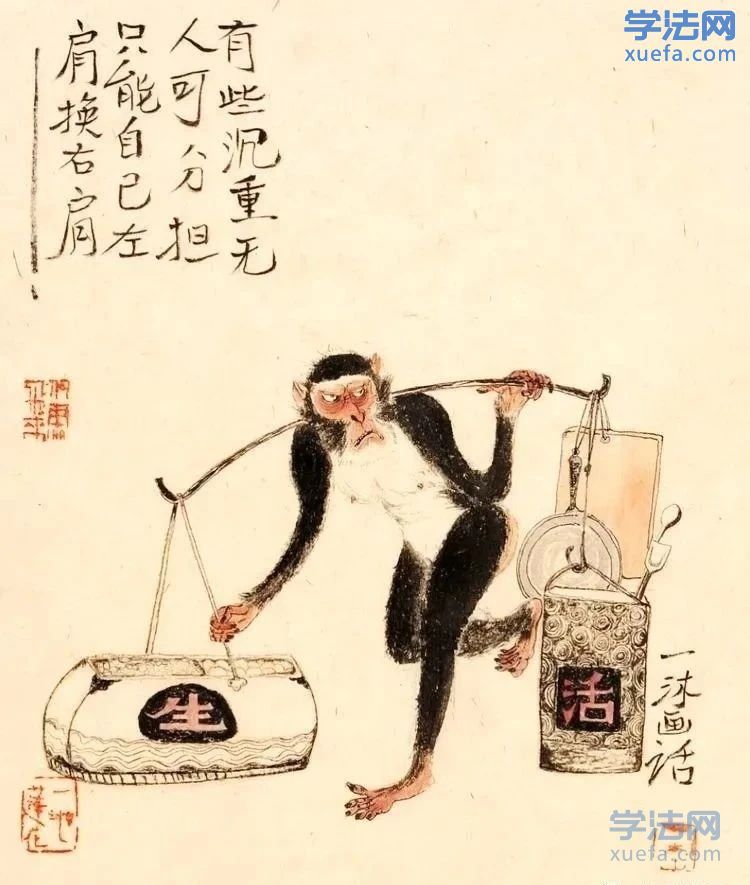 有些沉重无
人可分担
只能自己左
肩换右肩
学法网
xuefa.com
生
活
一沐画话
学法网
xuefa.com